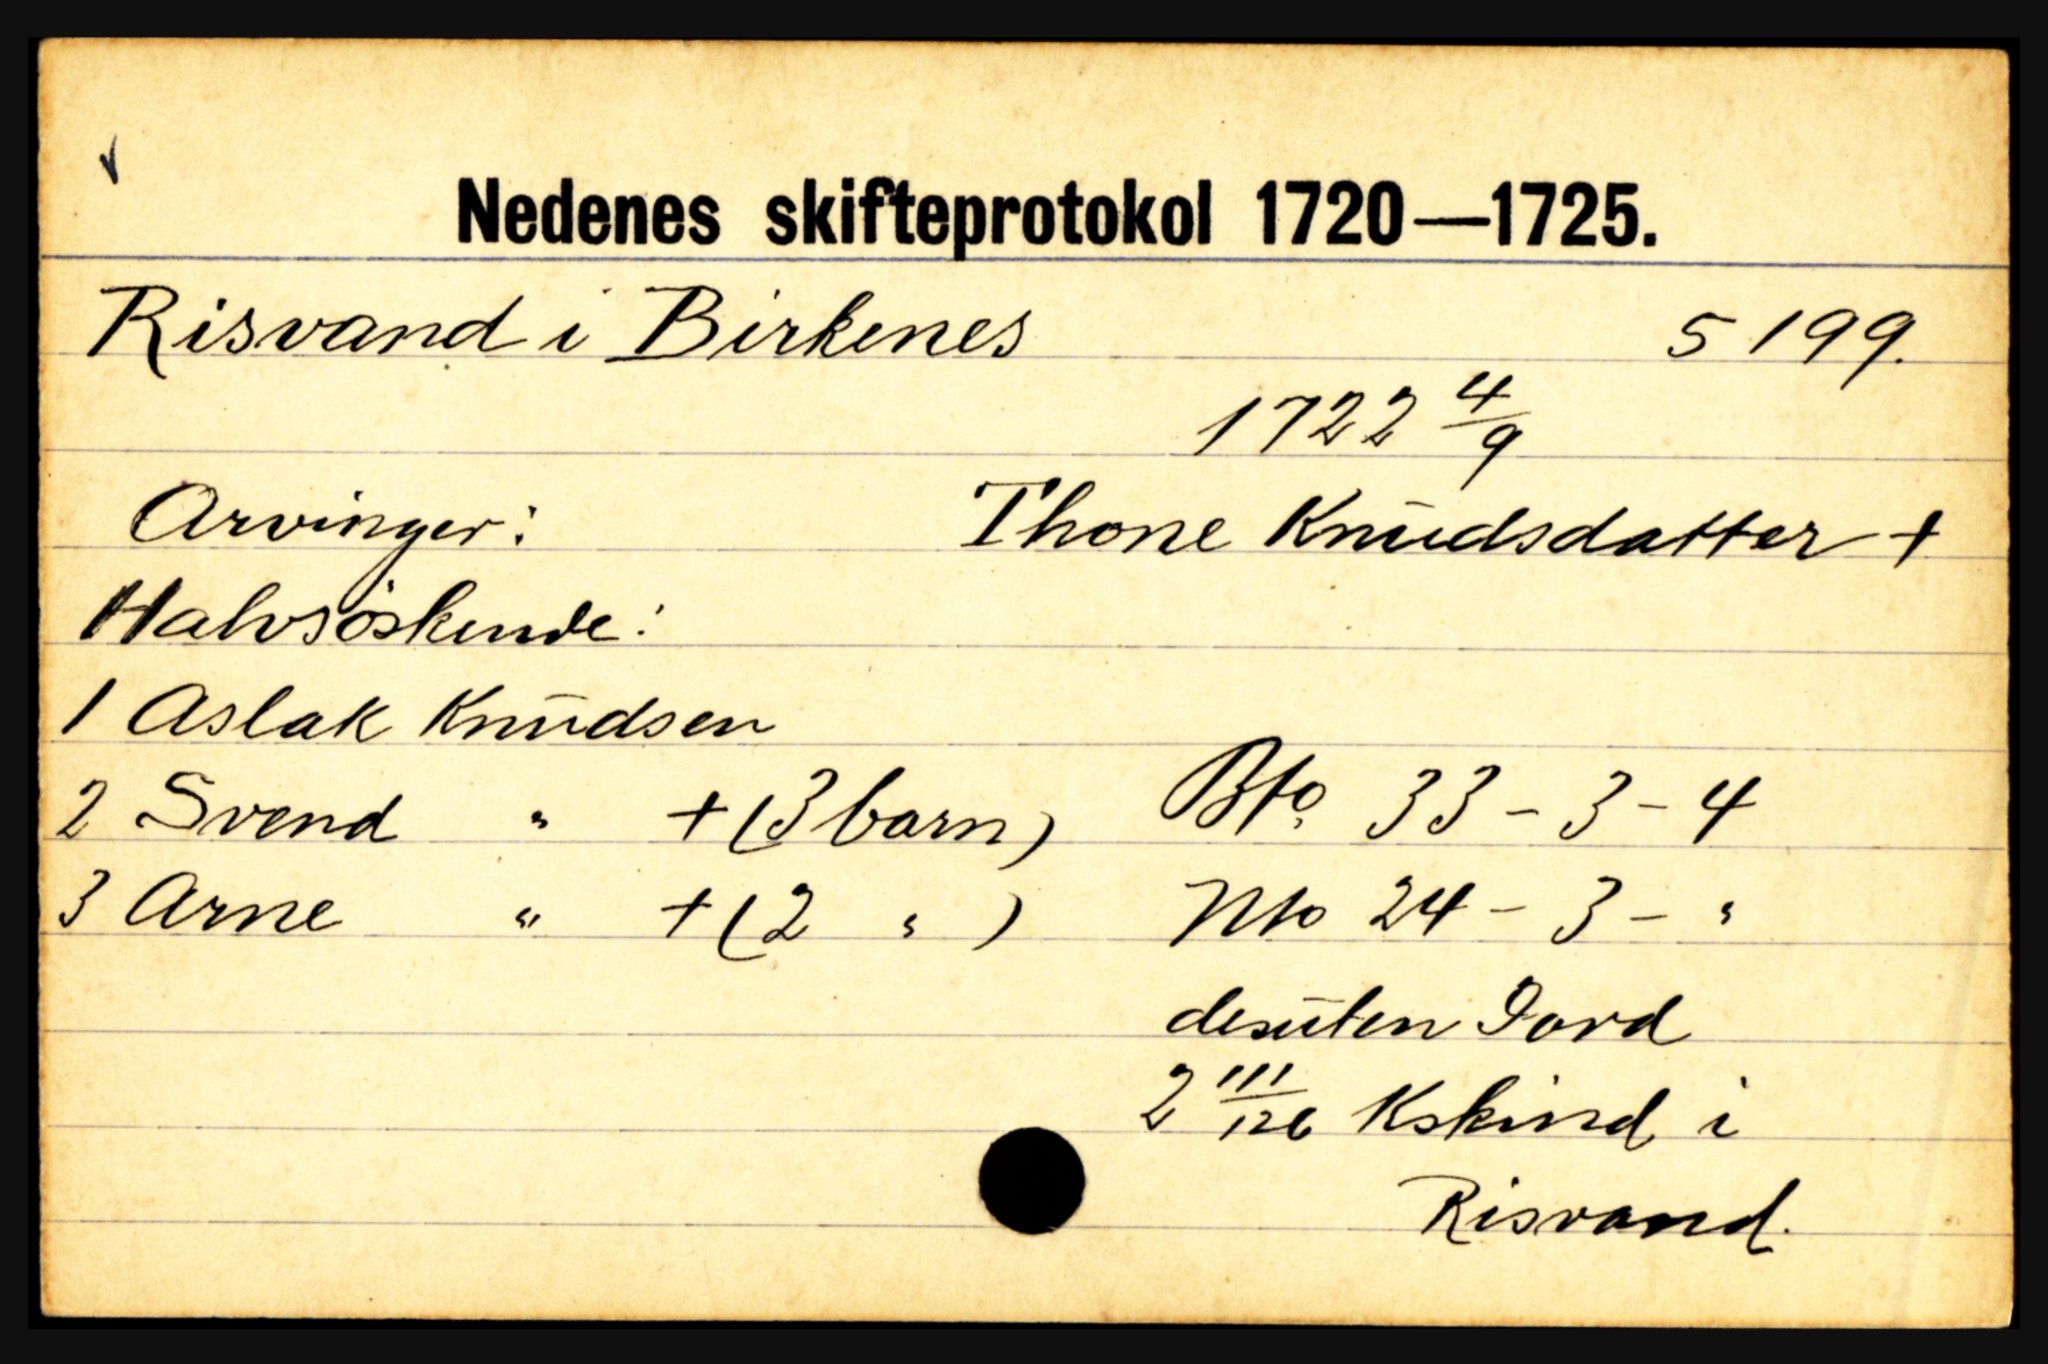 Nedenes skifteprotokol 1720—1725.
Risvand i Birkenes 5 199.
1722 4/9
Arvinger: Thone Knudsdatter +
Halvsøskende:
1 Aslak Knudsen
2 Svend " + (3 barn) Bto 33 - 3 - 4
3 Arne " + (2 " ) Nto 24 - 3 - "
desuten Jord
2 111/126 Kskind i
Risvand.